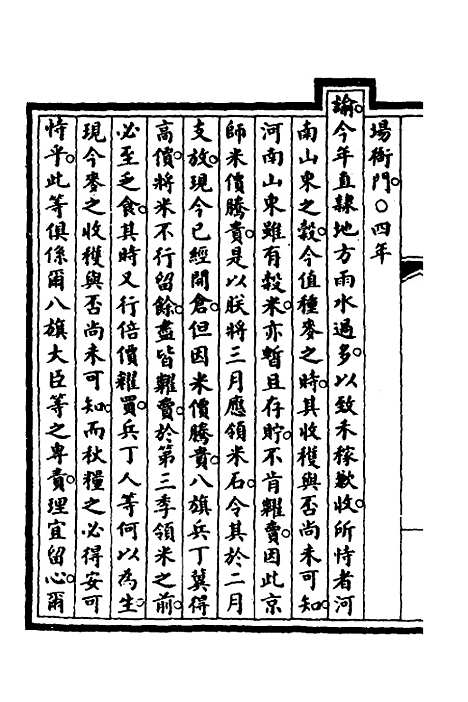 場衙門○四年
諭今年直隸地方雨水過多以致禾稼歉收所恃者河
南山東之穀今值種麥之時其收穫與否尚未可知
河南山東雖有穀米亦暫且存貯不肯糶賣因此京
師米價騰貴是以朕將三月應領米石令其於二月
支放現今已經開倉但因米價騰貴八旗兵丁冀得
高價將米不行留餘盡皆糶賣於第三季領米之前
必至乏食其時又行倍價糴買兵丁人等何以為生
現今麥之收穫與否尚未可知而秋糧之必得安可
恃乎此等俱係爾八旗大臣等之專責理宜留心爾